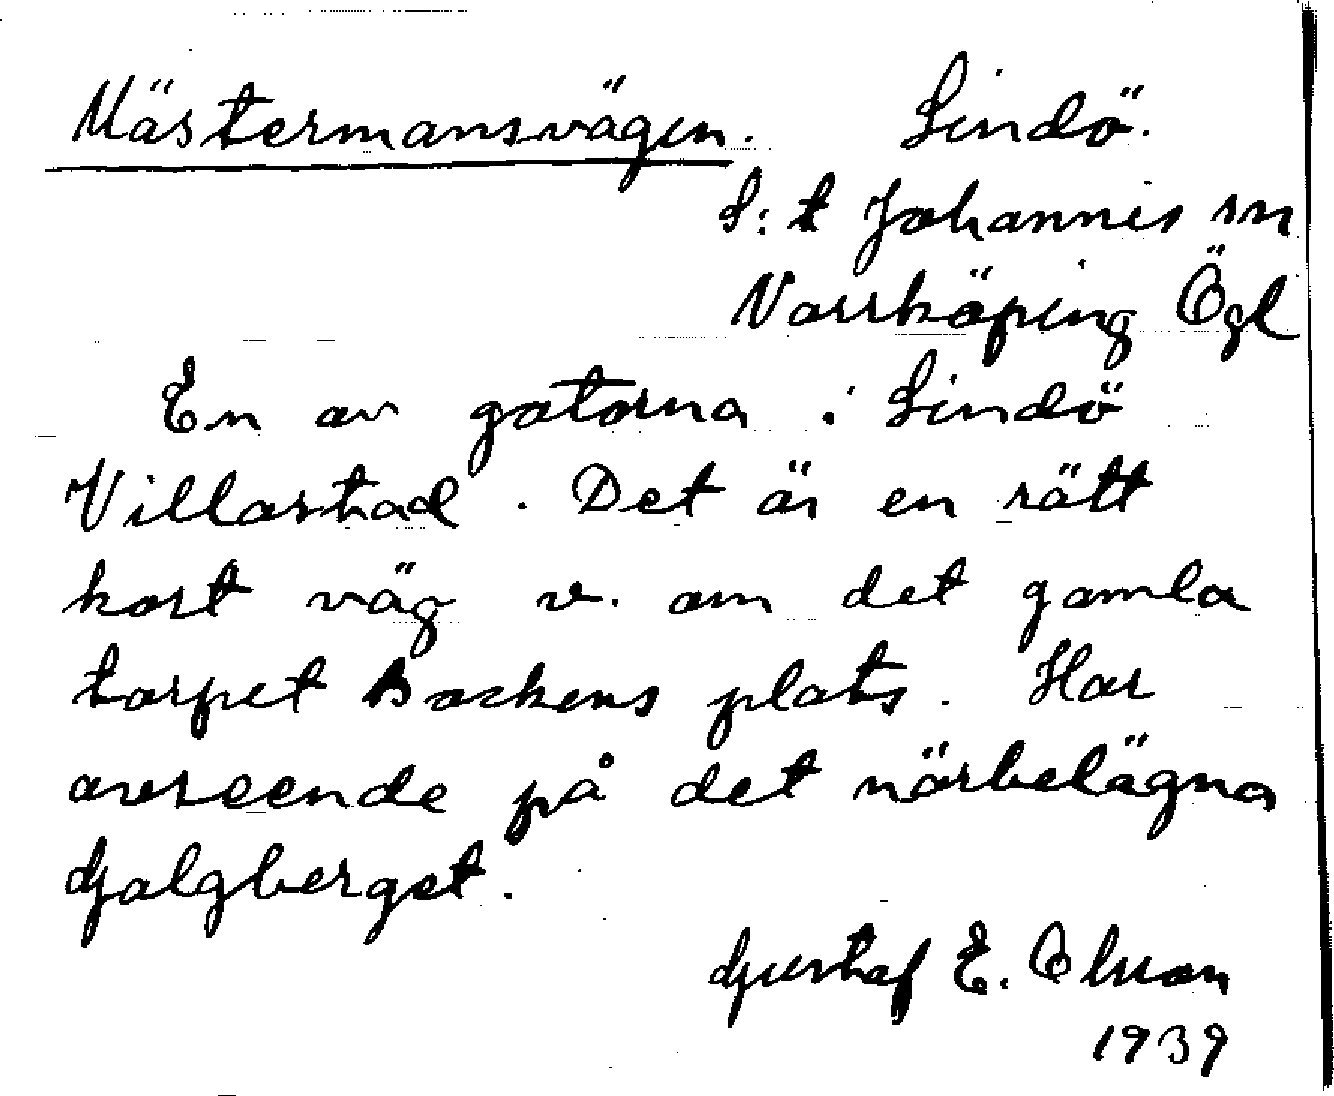 Mästermansvägen. Lindö.
S:t Johannis sn
Norrköping Ögl
En av gatorna i Lindö
Villastad. Det är en rätt
kort väg v. om det gamla
torpet Backens plats. Har
avseende på det närbelägna
Galgberget.
Gustaf E. Olsson
1939